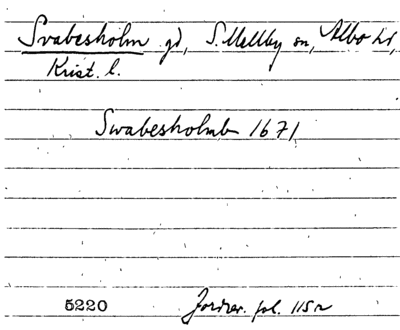 Svabesholm gd, S. Mellby sn, Albo hd,
Krist. l.
Swabesholmb 1671
5220 Jordrev. fol. 115r